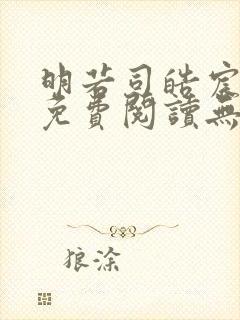 明若司皓宸
免費閱讀無
狼涂